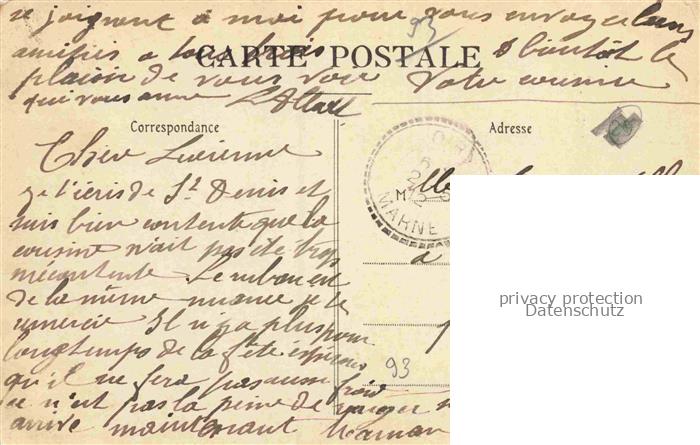 se joignent à moi pour vous envoyer leurs
amitiés a tous trois
CARTE POSTALE
a bientôt le
plaisir de vous voir Votre cousine
qui vous aime
93
Correspondance
Adresse
Chère Lucienne
je t'écris de St Denis et
suis bien contente que la
cousine n'ait pas été trop
mécontente. Le ruban est
de la même nuance je te
remercie Il n'y a plus pour
longtemps de la fête espérons
qu'il ne fera pas aussi froid
ce n'est pas la peine de
arrivé maintenant Maman
MARNE
a
93
privacy protection
Datenschutz